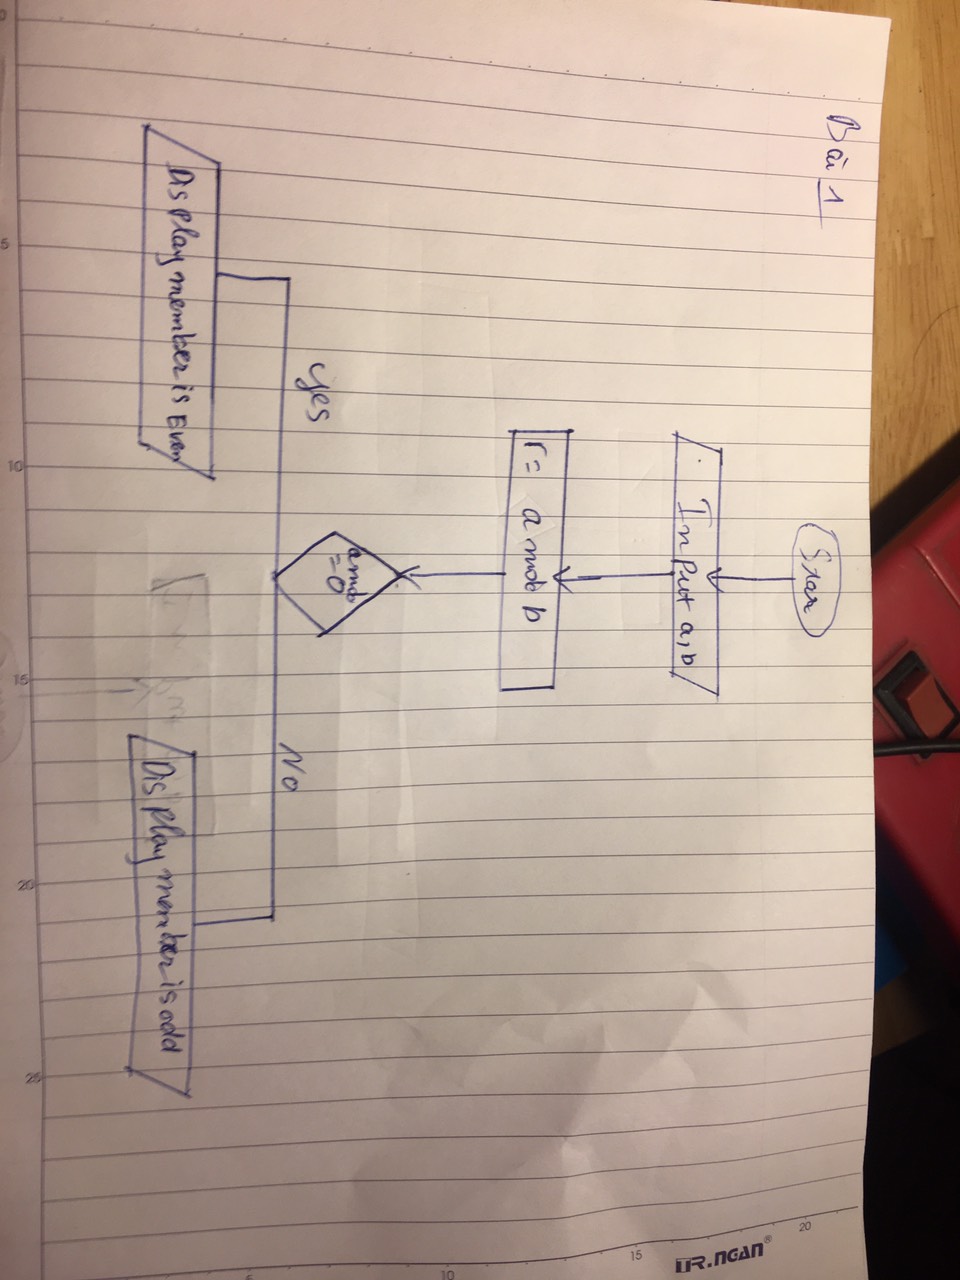 Bài 1
Star
Input a,b
r= a mod b
a mod
=0
yes
No
Display member is Even
Display member is odd
5
10
15
20
25
5
10
15
20
UR.NGAN®